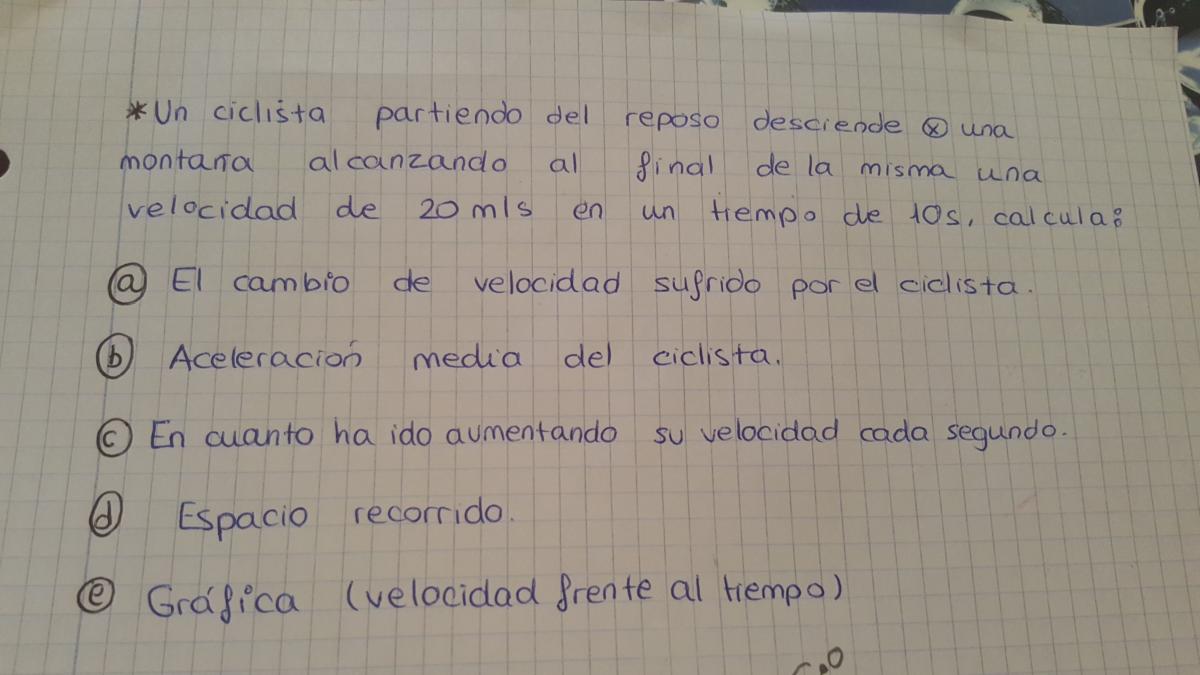 *Un ciclista partiendo del reposo desciende ⊗ una
montaña alcanzando al final de la misma una
velocidad de 20 m/s en un tiempo de 10s, calcula:
ⓐ El cambio de velocidad sufrido por el ciclista.
ⓑ Aceleración media del ciclista.
ⓒ En cuanto ha ido aumentando su velocidad cada segundo.
ⓓ Espacio recorrido.
ⓔ Gráfica (velocidad frente al tiempo)